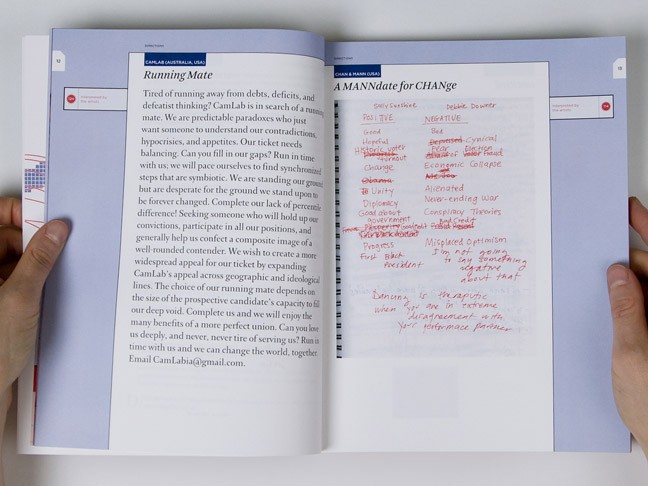 DIRECTIONS
12
CAMLAB (AUSTRALIA, USA)
Running Mate
Tired of running away from debts, deficits, and
defeatist thinking? CamLab is in search of a running
mate. We are predictable paradoxes who just
want someone to understand our contradictions,
hypocrisies, and appetites. Our ticket needs
balancing. Can you fill in our gaps? Run in time
with us; we will pace ourselves to find synchronized
steps that are symbiotic. We are standing our ground
but are desperate for the ground we stand upon to
be forever changed. Complete our lack of percentile
difference! Seeking someone who will hold up our
convictions, participate in all our positions, and
generally help us confect a composite image of a
well-rounded contender. We wish to create a more
widespread appeal for our ticket by expanding
CamLab's appeal across geographic and ideological
lines. The choice of our running mate depends on
the size of the prospective candidate's capacity to fill
our deep void. Complete us and we will enjoy the
many benefits of a more perfect union. Can you love
us deeply, and never, never tire of serving us? Run in
time with us and we can change the world, together.
Email CamLabia@gmail.com.
DIRECTIONS
13
CHAN & MANN (USA)
A MANNdate for CHANge
Susy Sunshine Debbie Downer
POSITIVE NEGATIVE
Good Bad
Hopeful Depressed Cynical
Historic voter Fear Election
turnout of Voter Fraud
Change Economic Collapse
Obama
Unity Alienated
Diplomacy Never-ending War
Good about Conspiracy Theories
government Bad Credit
Prosperity
Progress Misplaced Optimism
First Black I'm not going
President to say something
negative
about that
Dancing is theraputic
when you are in extreme
disagreement with
your performace partner